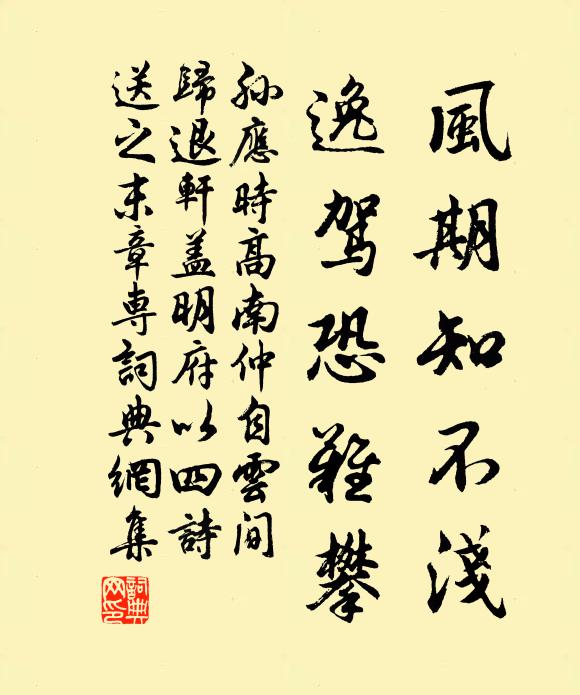 風期知不淺
逸駕恐難攀
孫應時高南仲自雲间
歸退軒盖明府以四詩
送之末章専詞典網集
詞典網印